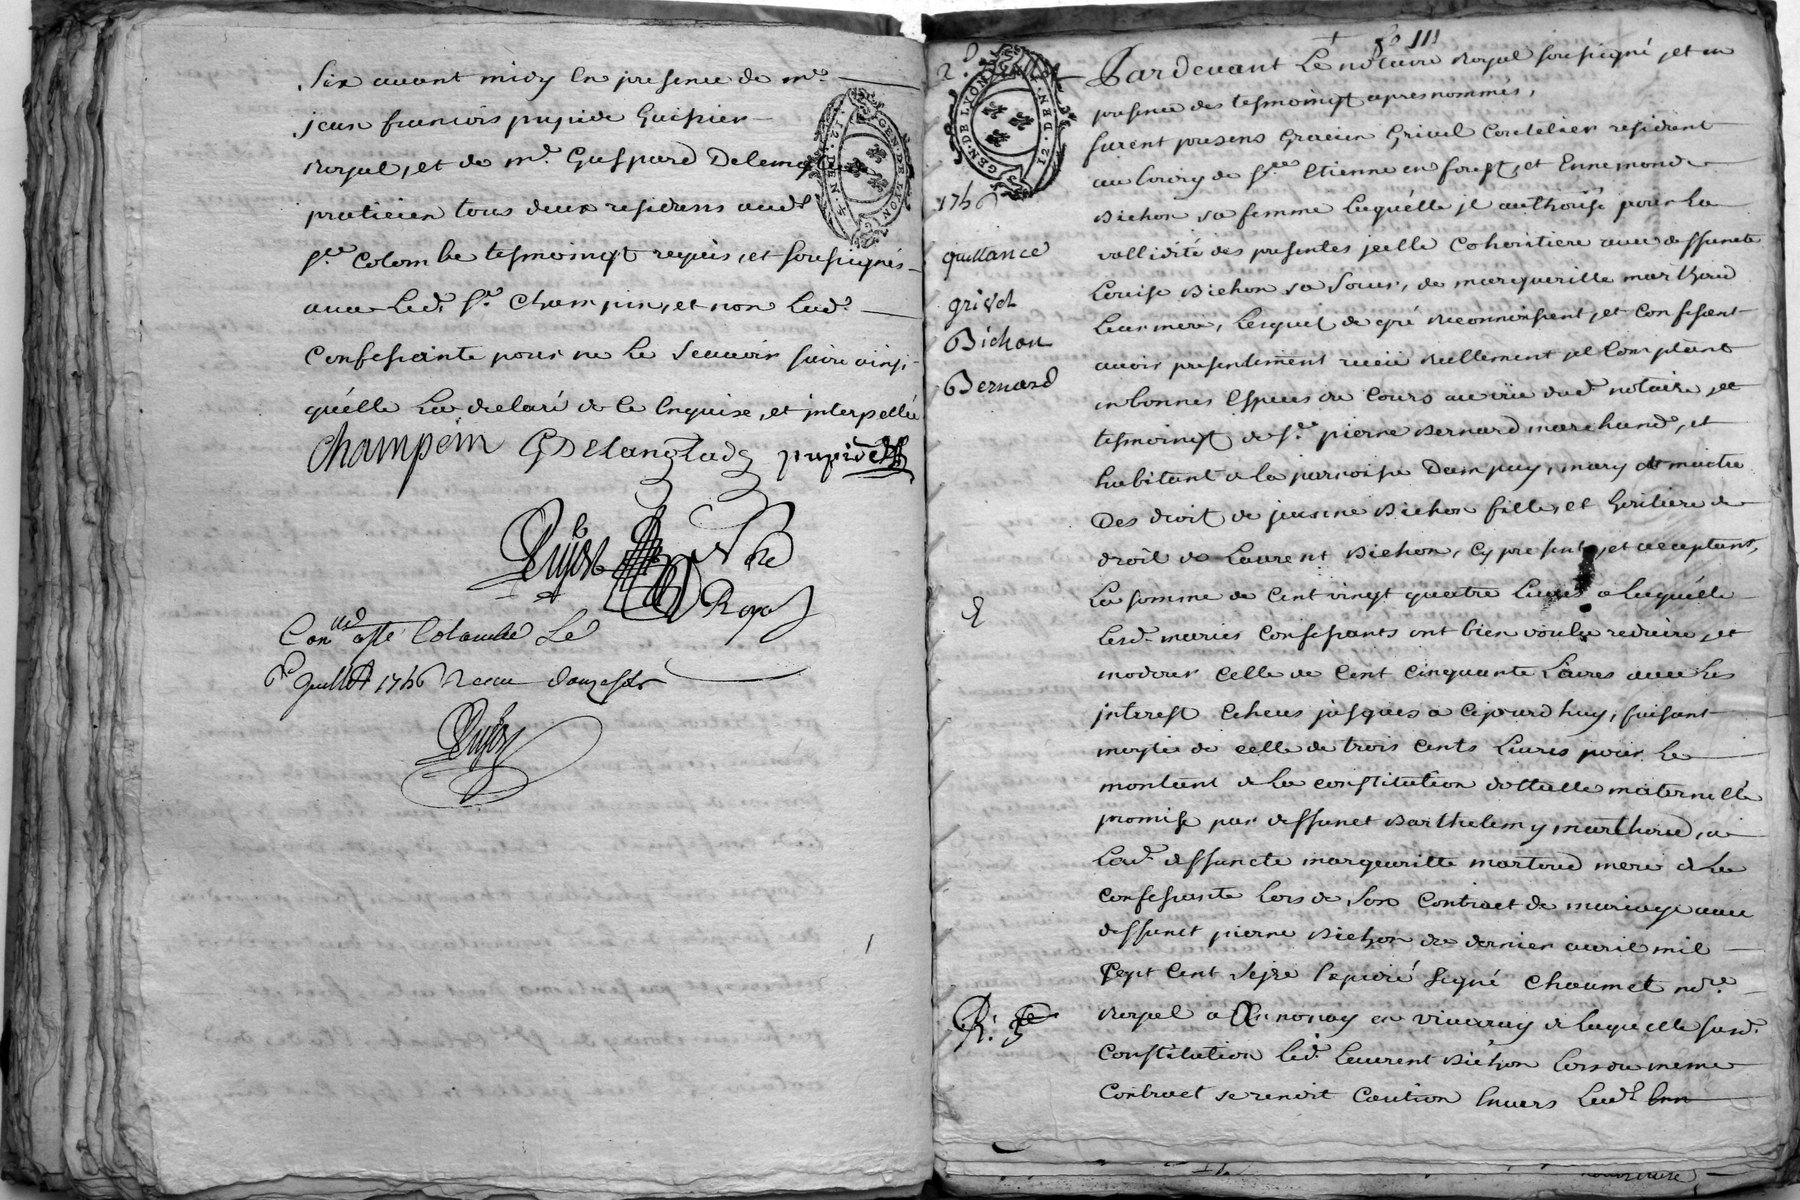 Six avant midy En presence de mr.
jean francois pupide huissier
Royal, et de mr. Gaspard
praticien tous deux residens aud.
ste. Colombe tesmoingt requis, et sousignés
avec Led. Sr. Champin, et non Lad.
Confessante pour ne Le scavoir faire ainsi
quélle La declaré de ce Enquise, et interpellée
GEN. DE LYON
12. DEN
champein GDelanglade pupide
Royal
Conlle. a ste Colombe Le
Juillet 1746 Receu douze sols
fo 111
GEN. DE LYON
12. DEN.
174
quittance
grivel
Bichon
Bernard
Pardevant Le notaire Royal sousigné, et en
presence des tesmoingt apres nommés,
furent presens Gracien Grivel Coutelier residant
au bourg de St. Etienne en forest, et Ennemonde
Bichon sa femme Laquélle jl authorise pour La
vallidité des presentes jcelle Coheritiere avec deffuncte
Louise Bichon sa soeur, de margueritte marthoud
Leur mere, Lesquels de gré reconnoissent, et Confessent
avoir presentement receu reellement et Comptant
en bonnes Especes du Cours au veü dud. notaire, et
tesmoingt de Sr. pierre Bernard marchand, et
habitant de la parroisse Dampuy, mary et maitre
Des droit de jeanne Bichon fille, et heritiere de
droit de Laurent Bichon, cy present, et acceptant,
La somme de Cent vingt quatre Livres a Laquélle
Lesd. mariés Confessants ont bien voulu reduire, et
moderer Celle de Cent Cinquante Livres avec Les
jnterest Echeus jusques a cejourdhuy, faisant
moytie de celle de trois Cents Livres pour Le
montant de la Constitution dottalle maternélle
promise par deffunct Barthelemy marthoud, a
Lad. deffuncte margueritte martoud mere de La
Confessante Lors de Son Contract de mariage avec
deffunct pierre Bichon du dernier avril mil
Sept Cent Seize Expedié Signé Chaumet nore.
Royal a Annonay en vivaray de laquelle susd.
Constitution Led. Laurent Bichon Lors du meme
Contract se rendit Caution Envers Lad.